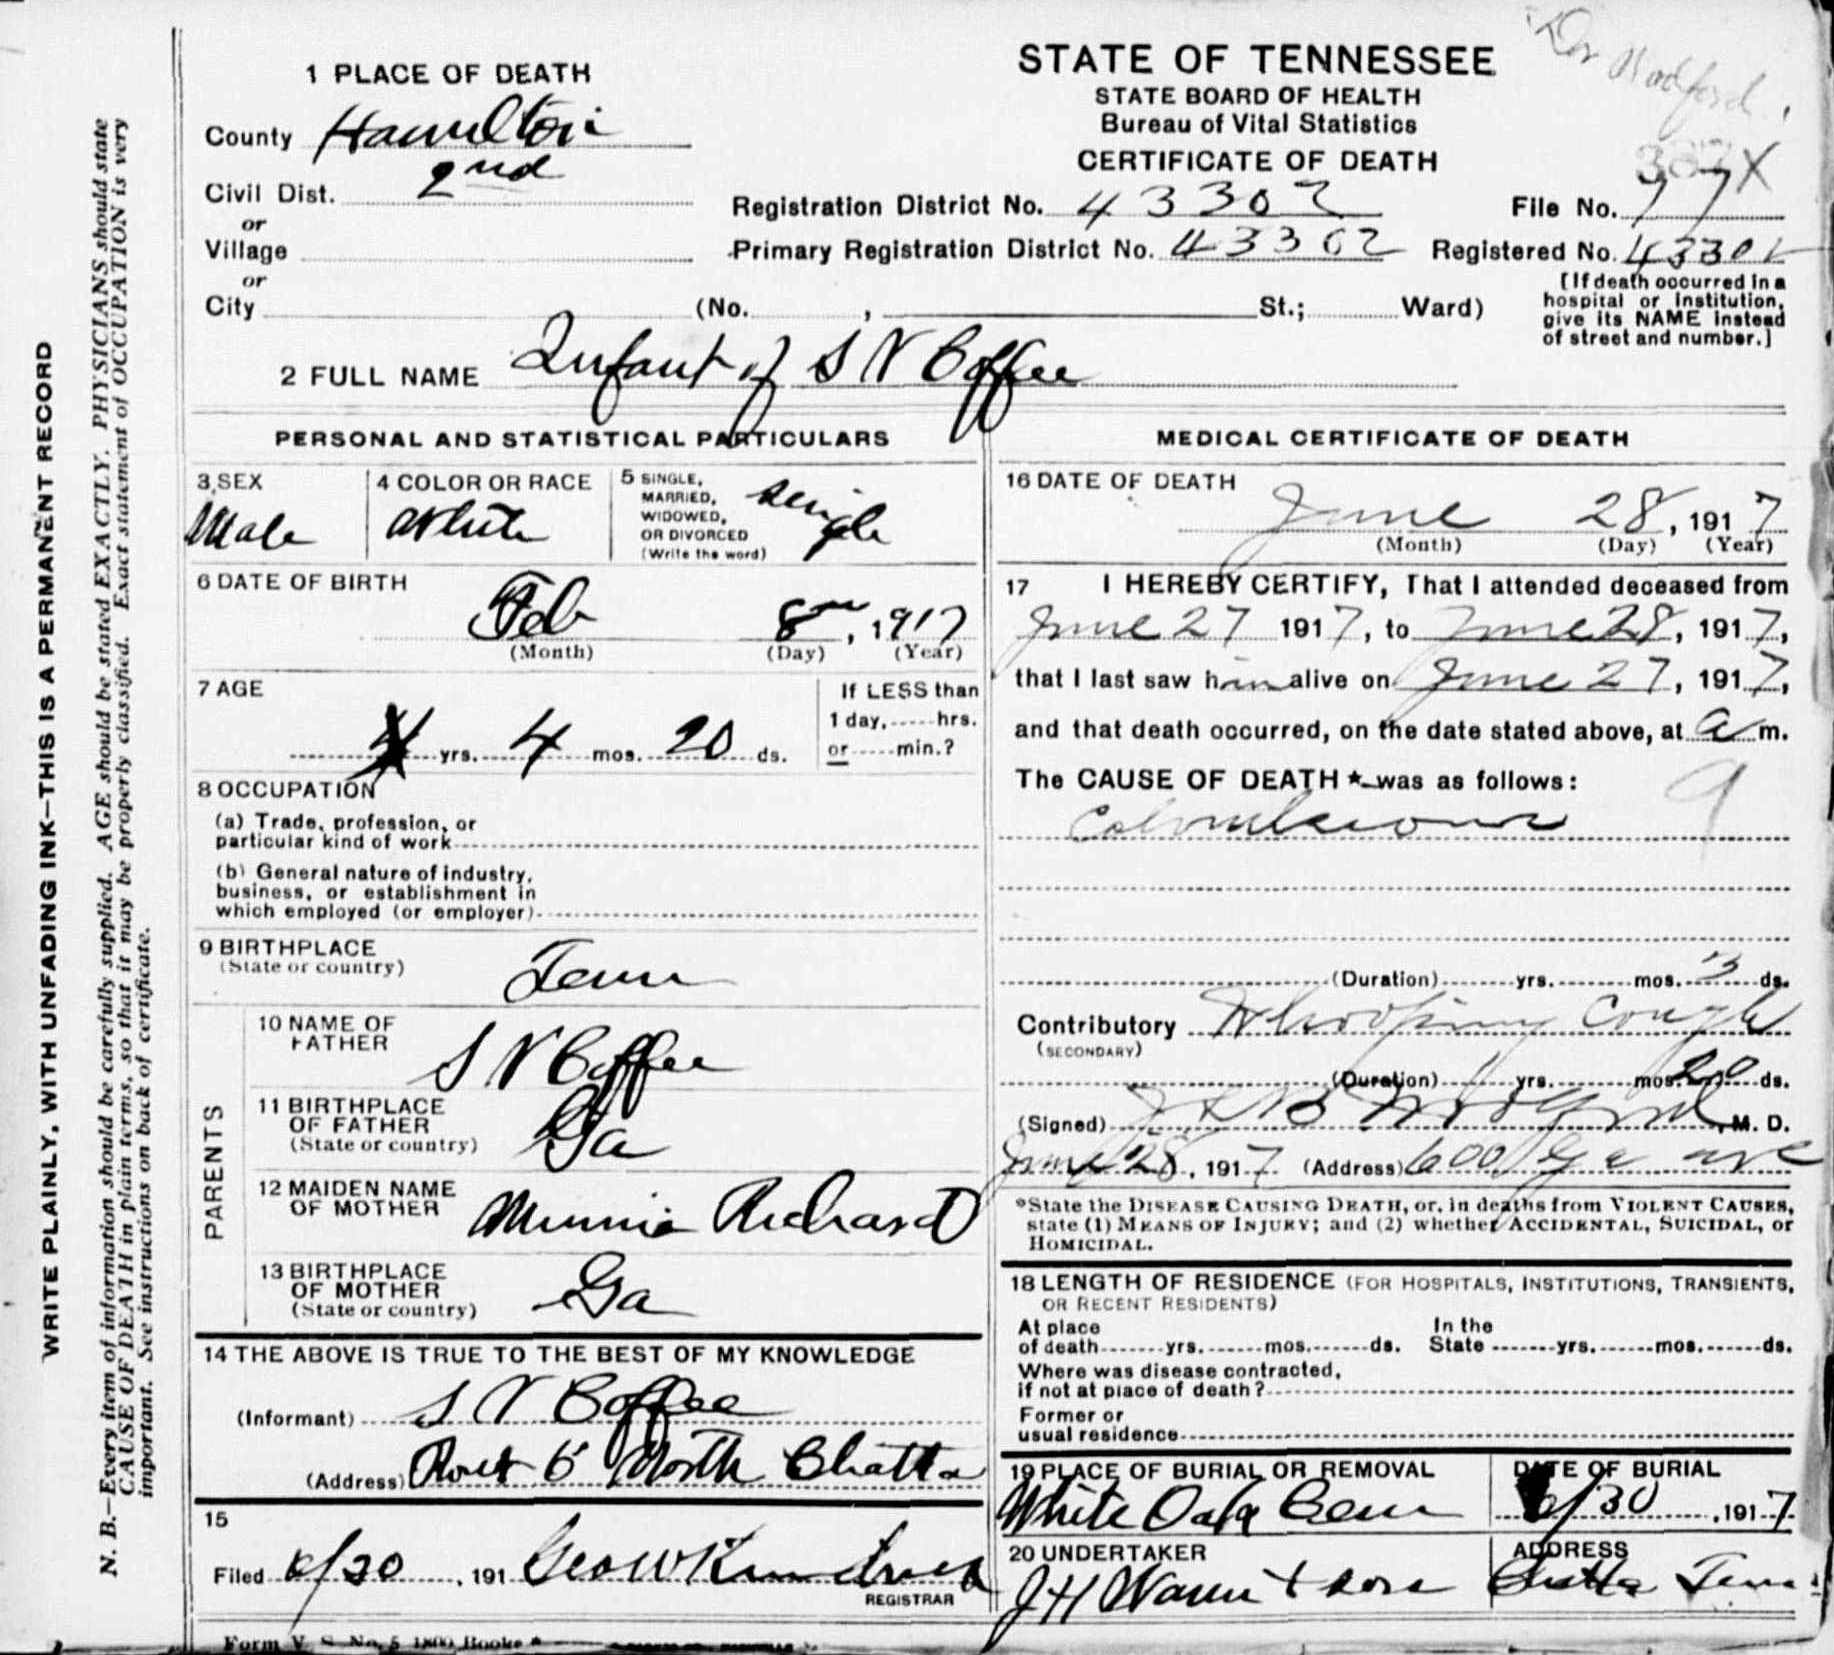 Dr Wodford
1 PLACE OF DEATH
County Hamilton
Civil Dist. 2nd
or
Village
or
City (No. , St.; Ward)
STATE OF TENNESSEE
STATE BOARD OF HEALTH
Bureau of Vital Statistics
CERTIFICATE OF DEATH
387X
Registration District No. 43302 File No. 77
Primary Registration District No. 43302 Registered No. 43302
[If death occurred in a
hospital or institution,
give its NAME instead
of street and number.]
2 FULL NAME Infant of S N Coffee
PERSONAL AND STATISTICAL PARTICULARS
3 SEX
Male
4 COLOR OR RACE
White
5 SINGLE,
MARRIED,
WIDOWED,
OR DIVORCED
(Write the word)
Single
6 DATE OF BIRTH
Feb 8, 1917
(Month) (Day) (Year)
7 AGE
yrs. 4 mos. 20 ds.
If LESS than
1 day, hrs.
or min.?
8 OCCUPATION
(a) Trade, profession, or
particular kind of work
(b) General nature of industry,
business, or establishment in
which employed (or employer)
9 BIRTHPLACE
(State or country)
Tenn
PARENTS
10 NAME OF
FATHER
S N Coffee
11 BIRTHPLACE
OF FATHER
(State or country)
Ga
12 MAIDEN NAME
OF MOTHER
Minnie Richard
13 BIRTHPLACE
OF MOTHER
(State or country)
Ga
14 THE ABOVE IS TRUE TO THE BEST OF MY KNOWLEDGE
(Informant) S N Coffee
(Address) Rout 6 North Chatta
15
Filed 6/30, 191 Geo W
REGISTRAR
MEDICAL CERTIFICATE OF DEATH
16 DATE OF DEATH
June 28, 1917
(Month) (Day) (Year)
17 I HEREBY CERTIFY, That I attended deceased from
June 27 1917, to June 28, 1917,
that I last saw him alive on June 27, 1917,
and that death occurred, on the date stated above, at a m.
The CAUSE OF DEATH* was as follows:
9
Convulsions
(Duration) yrs. mos. 3 ds.
Contributory Whooping Cough
(SECONDARY)
(Duration) yrs. mos. 20 ds.
(Signed) M. D.
June 28, 1917 (Address) 600 Ga ave
*State the DISEASE CAUSING DEATH, or, in deaths from VIOLENT CAUSES,
state (1) MEANS OF INJURY; and (2) whether ACCIDENTAL, SUICIDAL, or
HOMICIDAL.
18 LENGTH OF RESIDENCE (FOR HOSPITALS, INSTITUTIONS, TRANSIENTS,
OR RECENT RESIDENTS)
At place
of death yrs. mos. ds.
In the
State yrs. mos. ds.
Where was disease contracted,
if not at place of death?
Former or
usual residence
19 PLACE OF BURIAL OR REMOVAL
White Oak Cem
DATE OF BURIAL
6/30, 1917
20 UNDERTAKER
J H Wann & sons
ADDRESS
Chatta Tenn
WRITE PLAINLY, WITH UNFADING INK—THIS IS A PERMANENT RECORD
N. B.—Every item of information should be carefully supplied. AGE should be stated EXACTLY. PHYSICIANS should state
CAUSE OF DEATH in plain terms, so that it may be properly classified. Exact statement of OCCUPATION is very
important. See instructions on back of certificate.
Form V. S. No. 5 1800 Books